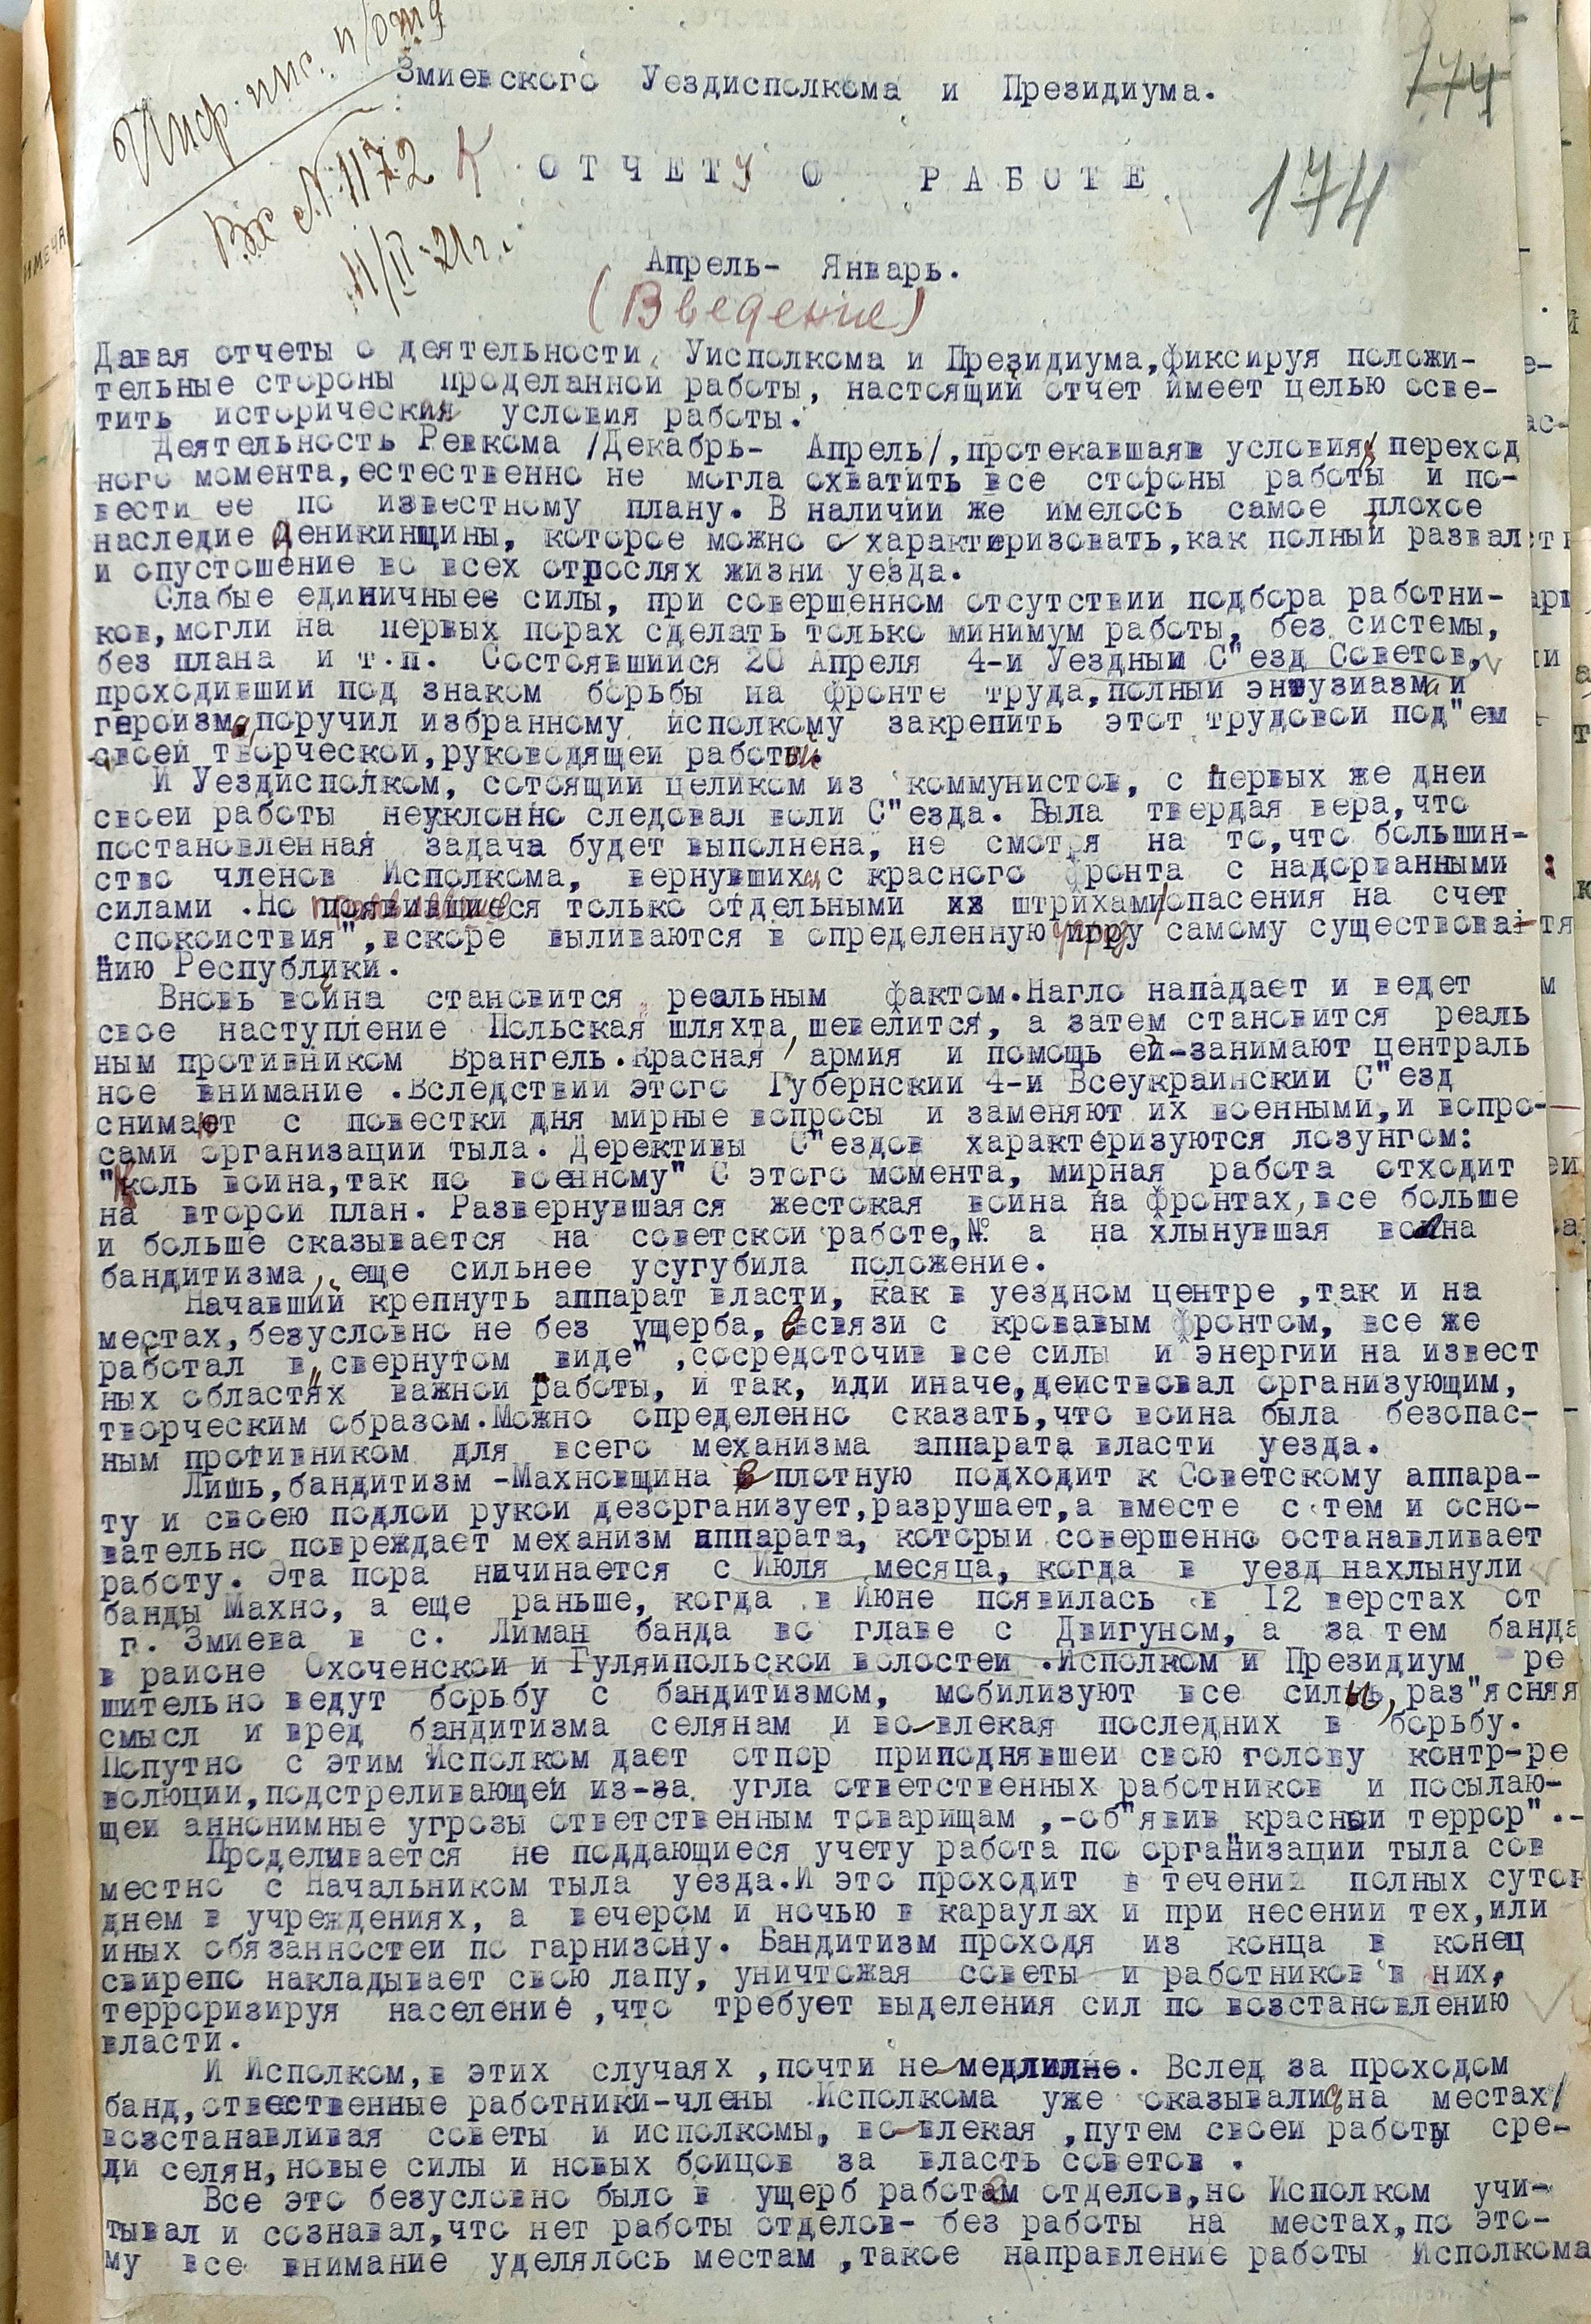 Инф. инс. п/отд
Змиевского Уездисполкома и Президиума.
174
Вх № 1172
11/II-21г.
К ОТЧЕТУ О РАБОТЕ
174
Апрель- Январь.
(Введение)
Давая отчеты о деятельности Уисполкома и Президиума,фиксируя положи-
тельные стороны проделанной работы, настоящий отчет имеет целью осве-
тить исторические условия работы.
Деятельность Ревкома /Декабрь- Апрель/,протекавшаяв условиях переход
ного момента,естественно не могла охватить все стороны работы и по-
вести ее по известному плану. В наличии же имелось самое плохое
наследие Деникинщины, которое можно о характеризовать,как полный развал
и опустошение во всех отрослях жизни уезда.
Слабые единичныее силы, при совершенном отсутствии подбора работни-
ков,могли на первых порах сделать только минимум работы, без системы,
без плана и т.п. Состоявшийся 20 Апреля 4-й Уездный С"езд Советов,
проходивший под знаком борьбы на фронте труда,полный энтузиазма и
героизма,поручил избранному исполкому закрепить этот трудовой под"ем
своей творческой,руководящей работой.
И Уездисполком, сотоящий целиком из коммунистов, с первых же дней
своей работы неуклонно следовал воли С"езда. Была твердая вера,что
постановленная задача будет выполнена, не смотря на то,что большин-
ство членов Исполкома, вернувшихся с красного фронта с надорванными
силами .Но появившиеся только отдельными их штрихами опасения на счет
спокойствия",вскоре выливаются в определенную угрозу самому существова-
"нию Республики.
Вновь война становится реальным фактом.Нагло нападает и ведет
свое наступление Польская шляхта, шевелится, а затем становится реаль
ным противником Врангель.Красная армия и помощь ей-занимают централь
ное внимание .Вследствии этого Губернский 4-й Всеукраинский С"езд
снимают с повестки дня мирные вопросы и заменяют их военными,и вопро-
сами организации тыла. Дерективы С"ездов характеризуются лозунгом:
"Коль война,так по военному" С этого момента, мирная работа отходит
на второй план. Развернувшаяся жестокая война на фронтах,все больше
и больше сказывается на советской работе,№ а на хлынувшая волна
бандитизма, еще сильнее усугубила положение.
Начавший крепнуть аппарат власти, как в уездном центре ,так и на
местах,безусловно не без ущерба, в связи с кровавым фронтом, все же
работал в "свернутом виде" ,сосредоточив все силы и энергии на извест
ных областях важной работы, и так, иди иначе,действовал организующим,
творческим образом.Можно определенно сказать,что война была безопас-
ным противником для всего механизма аппарата власти уезда.
Лишь,бандитизм -Махновщина в плотную подходит к Советскому аппара-
ту и своею подлой рукой дезорганизует,разрушает,а вместе с тем и осно-
вательно повреждает механизм аппарата, который совершенно останавливает
работу. Эта пора начинается с Июля месяца, когда в уезд нахлынули
банды Махно, а еще раньше, когда в Июне появилась в 12 верстах от
г. Змиева в с. Лиман банда во главе с Двигуном, а за тем банда
в районе Охоченской и Гуляйпольской волостей .Исполком и Президиум ре
шительно ведут борьбу с бандитизмом, мобилизуют все силы,раз"ясняя
смысл и вред бандитизма селянам и во влекая последних в борьбу.
Попутно с этим Исполком дает отпор приподнявшей свою голову контр-ре
волюции,подстреливающей из-за угла ответственных работников и посылаю-
щей аннонимные угрозы ответственным товарищам ,-об"явив "красный террор".-
Проделывается не поддающиеся учету работа по организации тыла сов
местно с Начальником тыла уезда.И это проходит в течении полных суток
днем в учреждениях, а вечером и ночью в караулах и при несении тех,или
иных обязанностей по гарнизону. Бандитизм проходя из конца в конец
свирепо накладывает свою лапу, уничтожая советы и работников в них,
терроризируя население ,что требует выделения сил по возстановлению
власти.
И Исполком,в этих случаях ,почти не медлил. Вслед за проходом
банд,отвественные работники-члены Исполкома уже оказывались на местах/
возстанавливая советы и исполкомы, во влекая ,путем своей работы сре-
ди селян,новые силы и новых бойцов за власть советов .
Все это безусловно было в ущерб работам отделов,но Исполком учи-
тывал и сознавал,что нет работы отделов- без работы на местах,по это-
му все внимание уделялось местам ,такое направление работы Исполкома